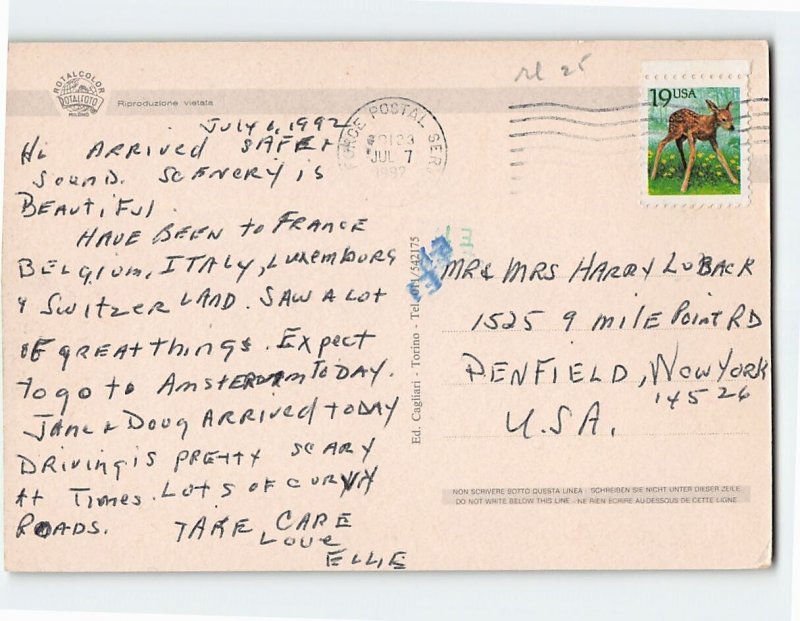 ROTALCOLOR
ROTALFOTO
MILANO
Riproduzione vietata
July 6, 1992
Hi ARRIVED SAFE+
SOUND. SCENERY IS
BEAUTIFUL
HAVE BEEN to FRANCE
BELGIUM, ITALY, LUXEMBURG
& SWITZERLAND. SAW A LOT
OF GREAT THINGS. Expect
To go to AMSTERDAM TODAY.
JANE & DOUG ARRIVED TODAY
DRIVING IS PRETTY SCARY
At TIMES. LOTS OF CURVY
ROADS. TAKE CARE
LOVE
ELLIE
FORCE POSTAL SER
JUL 7
1992
Ed. Cagliari - Torino - Tel. 011/542175
19 USA
MR & MRS HARRY LUBACK
1525 9 MILE POINT RD
PENFIELD, NOW YORK
14526
U.S.A.
NON SCRIVERE SOTTO QUESTA LINEA - SCHREIBEN SIE NICHT UNTER DIESER ZEILE
DO NOT WRITE BELOW THIS LINE - NE RIEN ECRIRE AU-DESSOUS DE CETTE LIGNE